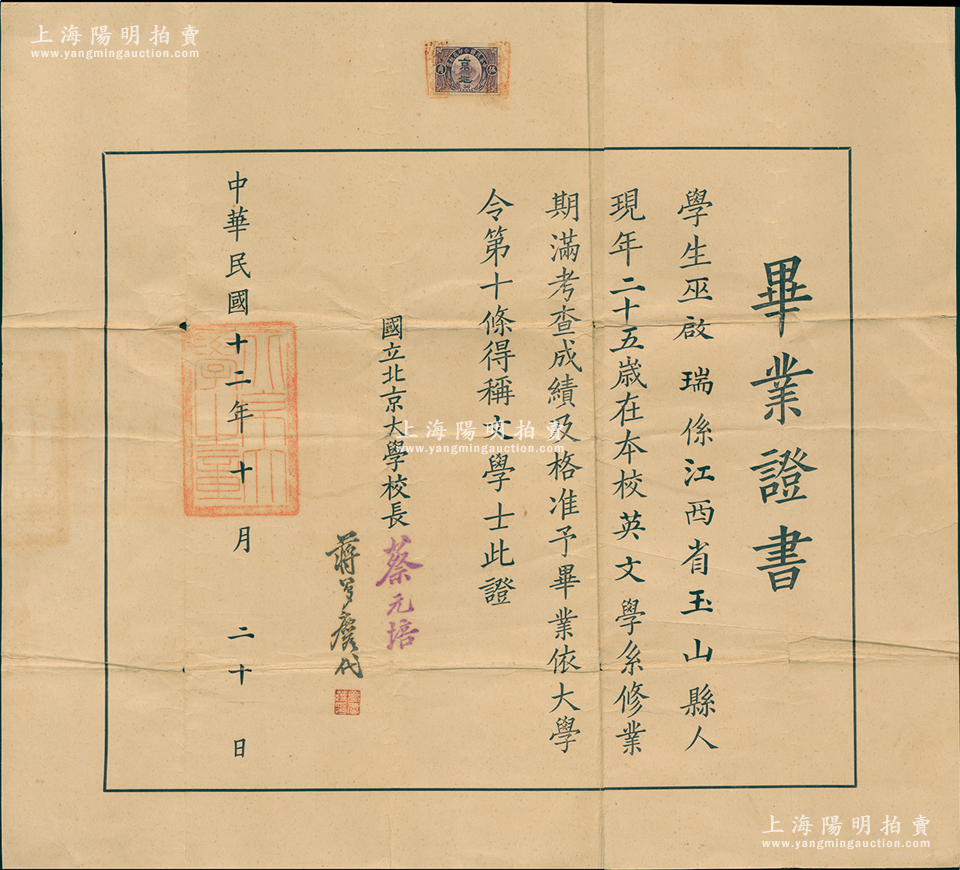 上海陽明拍賣
www.yangmingauction.com
畢業證書
學生巫啟瑞係江西省玉山縣人
現年二十五歲在本校英文學系修業
期滿考查成績及格准予畢業依大學
令第十條得稱文學士此證
國立北京大學校長蔡元培
蔣夢麐代
中華民國十二年十月二十日
上海陽明拍賣
www.yangmingauction.com
上海陽明拍賣
www.yangmingauction.com